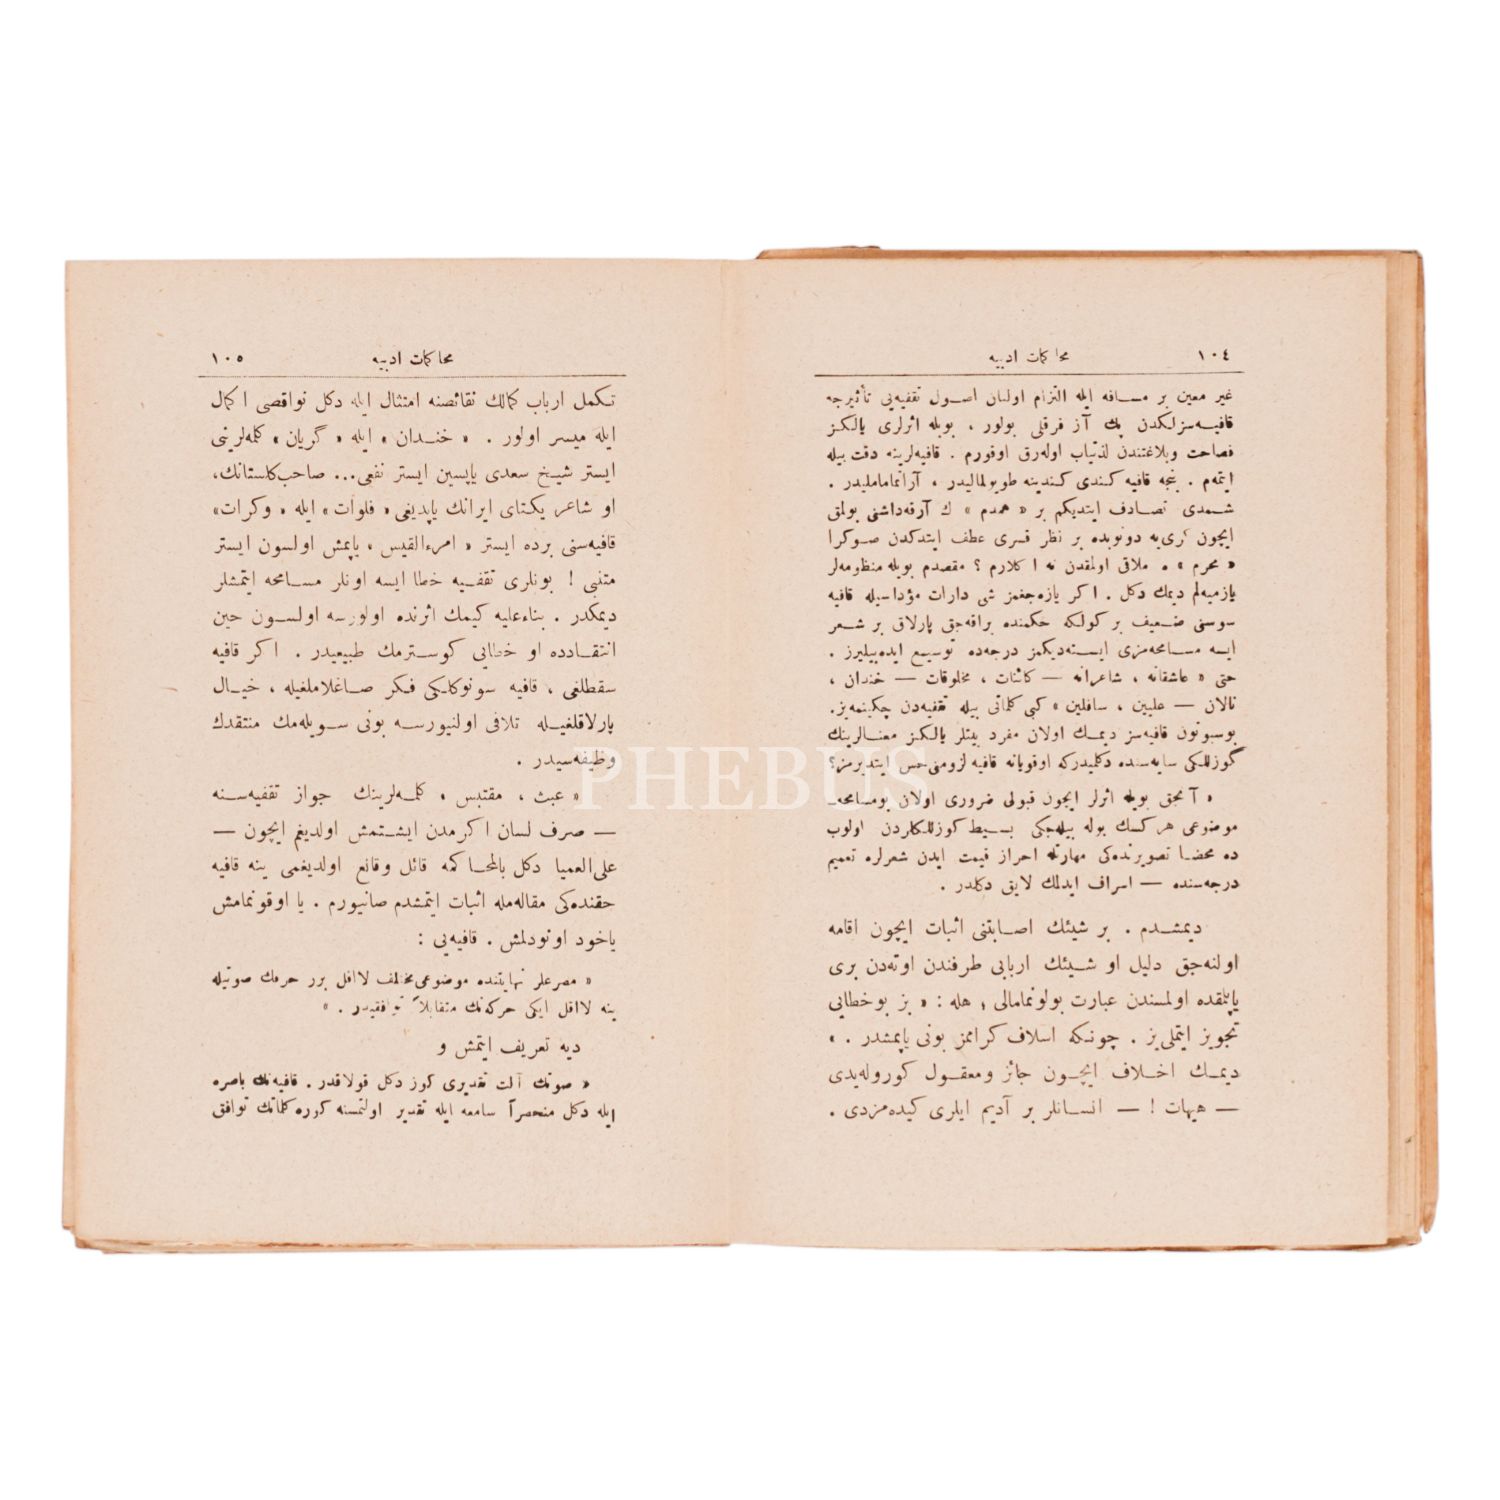 ١٠٤
محاكمات ادبيه
غير معين بر مسافه ايله التزام اولنان اصول تقفيه‌يى تأثيرجه
قافيه‌سزلكدن پك آز فرقلى بولور ، بويله اثرلرى يالكز
فصاحت وبلاغتندن لذتياب اوله‌رق اوقورم . قافيه‌لرينه دقت بيله
ايتمم . بنجه قافيه كندى كندينه طويولماليدر ، آرانماماليدر .
شمدى تصادف ايتديكم بر « همدم » ك آرقه‌داشنى بولمق
ايچون كرى‌يه دونوبده بر نظر قسرى عطف ايتدكدن صوكرا
« محرم » ه ملاقى اولمقدن نه ا كلارم ؟ مقصدم بويله منظومه‌لر
يازميه‌لم ديمك دكل . ا كر يازه‌جغمز شى دارات مؤداسيله قافيه
سوسنى ضعيف بر كولكه حكمنده براقه‌جق پارلاق بر شعر
ايسه مسامحه‌مزى ايسته‌ديكمز درجه‌ده توسيع ايده‌بيليرز .
حتى « عاشقانه ، شاعرانه — كائنات ، مخلوقات — خندان ،
نالان — عليين ، سافلين » كبى كلماتى بيله تقفيه‌دن چكينمه‌يز.
بوسبوتون قافيه‌سز ديمك اولان مفرد بيتلر يالكز معنالرينك
كوزللكى سايه‌سنده دكليدركه اوقويانه قافيه لزومنى حس ايتديرمز؟
« آنجق بويله اثرلر ايچون قبولى ضرورى اولان بومسامحه‌
موضوعى هركسك بوله بيله‌جكى بسيط كوزللكلردن اولوب
ده محضا تصويرنده‌كى مهارتله احراز قيمت ايدن شعرلره تعميم
درجه‌سنده — اسراف ايدلمك لايق دكلدر .
ديمشدم . بر شيئك اصابتنى اثبات ايچون اقامه
اولنه‌جق دليل او شيئك اربابى طرفندن اوته‌دن برى
ياپلمقده اولمسندن عبارت بولونمامالى ; هله : « بز بوخطايى
تجويز ايتملى‌يز . چونكه اسلاف كرامز بونى ياپمشدر . »
ديمك اخلاف ايچون جائز ومعقول كوروله‌يدى
— هيهات ! — انسانلر بر آديم ايلرى كيده‌مزدى .
١٠٥
محاكمات ادبيه
تكمل ارباب كمالك نقائصنه امتثال ايله دكل نواقصى ا كمال
ايله ميسر اولور . « خندان » ايله « گريان » كلمه‌لرينى
ايستر شيخ سعدى ياپسين ايستر نفعى... صاحب‌كلستانك،
او شاعر يكتاى ايرانك ياپديغى « فلوات » ايله « وكرات»
قافيه‌سنى برده ايستر « امرءالقيس ، ياپمش اولسون ايستر
متنبى ! بونلرى تقفيه خطا ايسه اونلر مسامحه ايتمشلر
ديمكدر . بناءعليه كيمك اثرنده اولورسه اولسون حين
انتقادده او خطايى كوسترمك طبيعيدر . ا كر قافيه
سقطلغى ، قافيه سونوكلكى فكر صاغلاملغيله ، خيال
پارلاقلغيله تلافى اولنيورسه بونى سويله‌مك منتقدك
وظيفه‌سيدر .
« عبث ، مقتبس » كلمه‌لرينك جواز تقفيه‌سنه
— صرف لسان ا كرمدن ايشتمش اولديغم ايچون —
على‌العميا دكل بالمحاكمه قائل وقانع اولديغمى ينه قافيه
حقنده‌كى مقاله‌مله اثبات ايتمشدم صانيورم . يا اوقونمامش
ياخود اونودلمش . قافيه‌يى :
« مصرعلر نهايتنده موضوعى مختلف لااقل برر حرفك صوتيله
ينه لااقل ايكى حركه‌نك متقابلاً توافقيدر . »
ديه تعريف ايتمش و
« صوتك آلت تقديرى كوز دكل قولاقدر . قافيه‌نك باصره
ايله دكل منحصراً سامعه ايله تقدير اولنمسنه كوره كلماتك توافق
PHEBUS